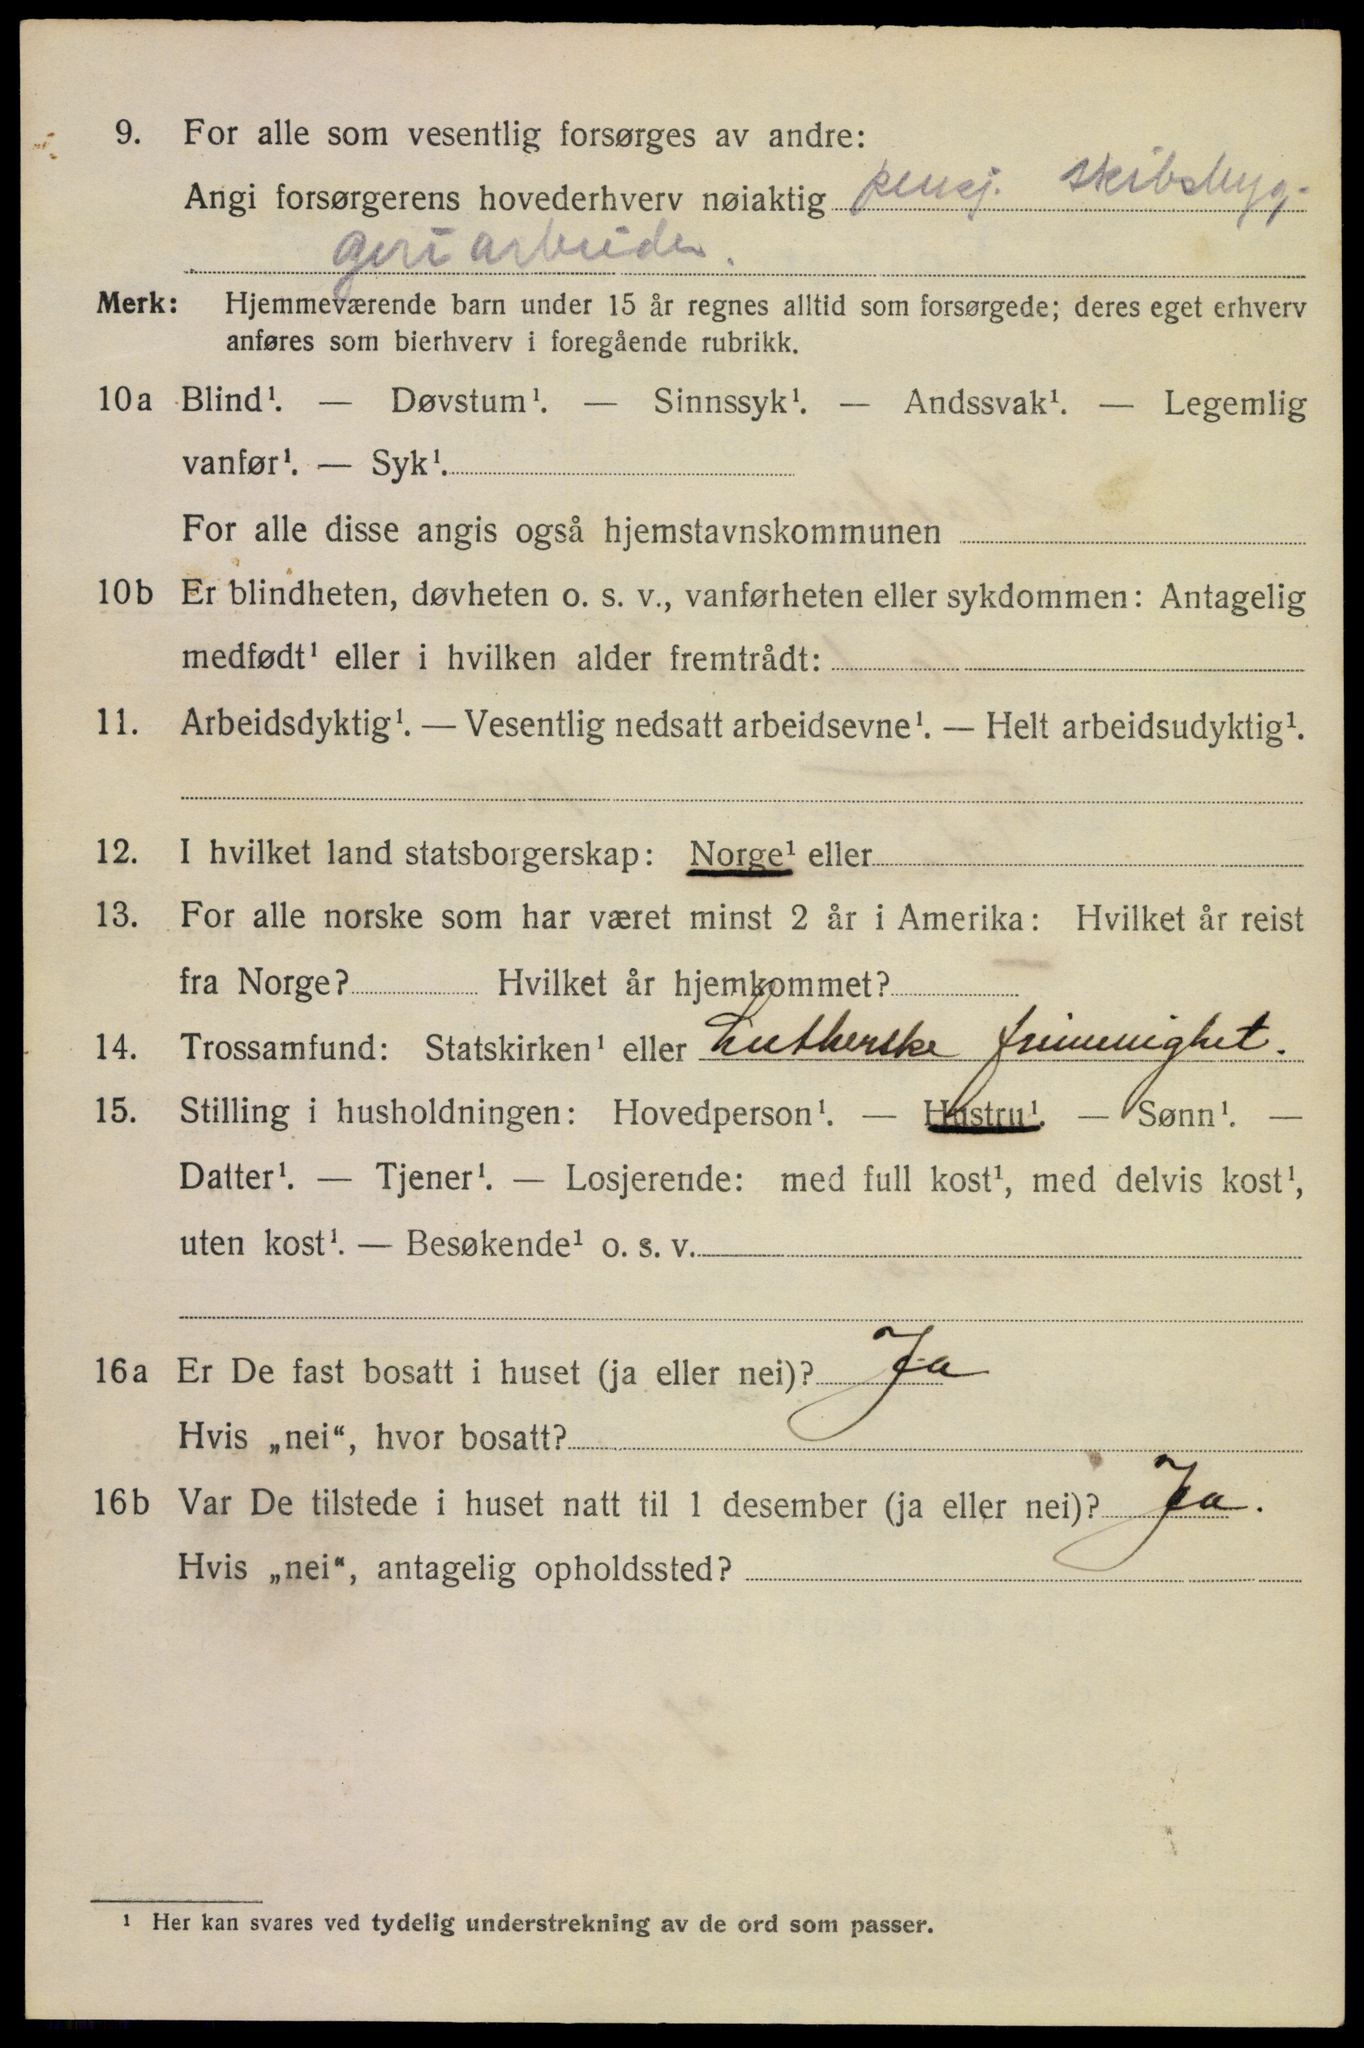 9. For alle som vesentlig forsørges av andre:
Angi forsørgerens hovederhverv nøiaktig pensj. skibsbyg-
geriarbeider.
Merk: Hjemmeværende barn under 15 år regnes alltid som forsørgede; deres eget erhverv
anføres som bierhverv i foregående rubrikk.
10a Blind¹. — Døvstum¹. — Sinnssyk¹. — Andssvak¹. — Legemlig
vanfør¹. — Syk¹.
For alle disse angis også hjemstavnskommunen
10b Er blindheten, døvheten o. s. v., vanførheten eller sykdommen: Antagelig
medfødt¹ eller i hvilken alder fremtrådt:
11. Arbeidsdyktig¹. — Vesentlig nedsatt arbeidsevne¹. — Helt arbeidsudyktig¹.
12. I hvilket land statsborgerskap: Norge¹ eller
13. For alle norske som har været minst 2 år i Amerika: Hvilket år reist
fra Norge? Hvilket år hjemkommet?
14. Trossamfund: Statskirken¹ eller Lutherske frimenighet.
15. Stilling i husholdningen: Hovedperson¹. — Hustru¹. — Sønn¹. —
Datter¹. — Tjener¹. — Losjerende: med full kost¹, med delvis kost¹,
uten kost¹. — Besøkende¹ o. s. v.
16a Er De fast bosatt i huset (ja eller nei)? Ja
Hvis „nei“, hvor bosatt?
16b Var De tilstede i huset natt til 1 desember (ja eller nei)? Ja.
Hvis „nei“, antagelig opholdssted?
¹ Her kan svares ved tydelig understrekning av de ord som passer.